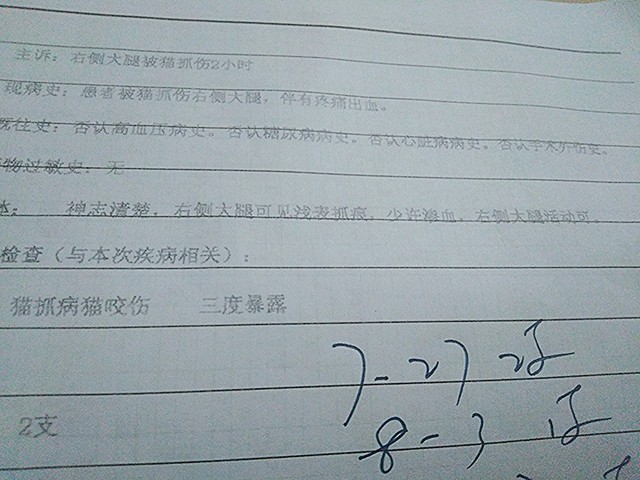 主诉：右侧大腿被猫抓伤2小时
现病史：患者被猫抓伤右侧大腿，伴有疼痛出血。
既往史：否认高血压病史。否认糖尿病病史。否认心脏病病史。否认手术外伤史。
物过敏史：无
体：  神志清楚，右侧大腿可见浅表抓痕，少许渗血，右侧大腿活动可
检查（与本次疾病相关）：
猫抓病猫咬伤  三度暴露
7-27
2支
8-3